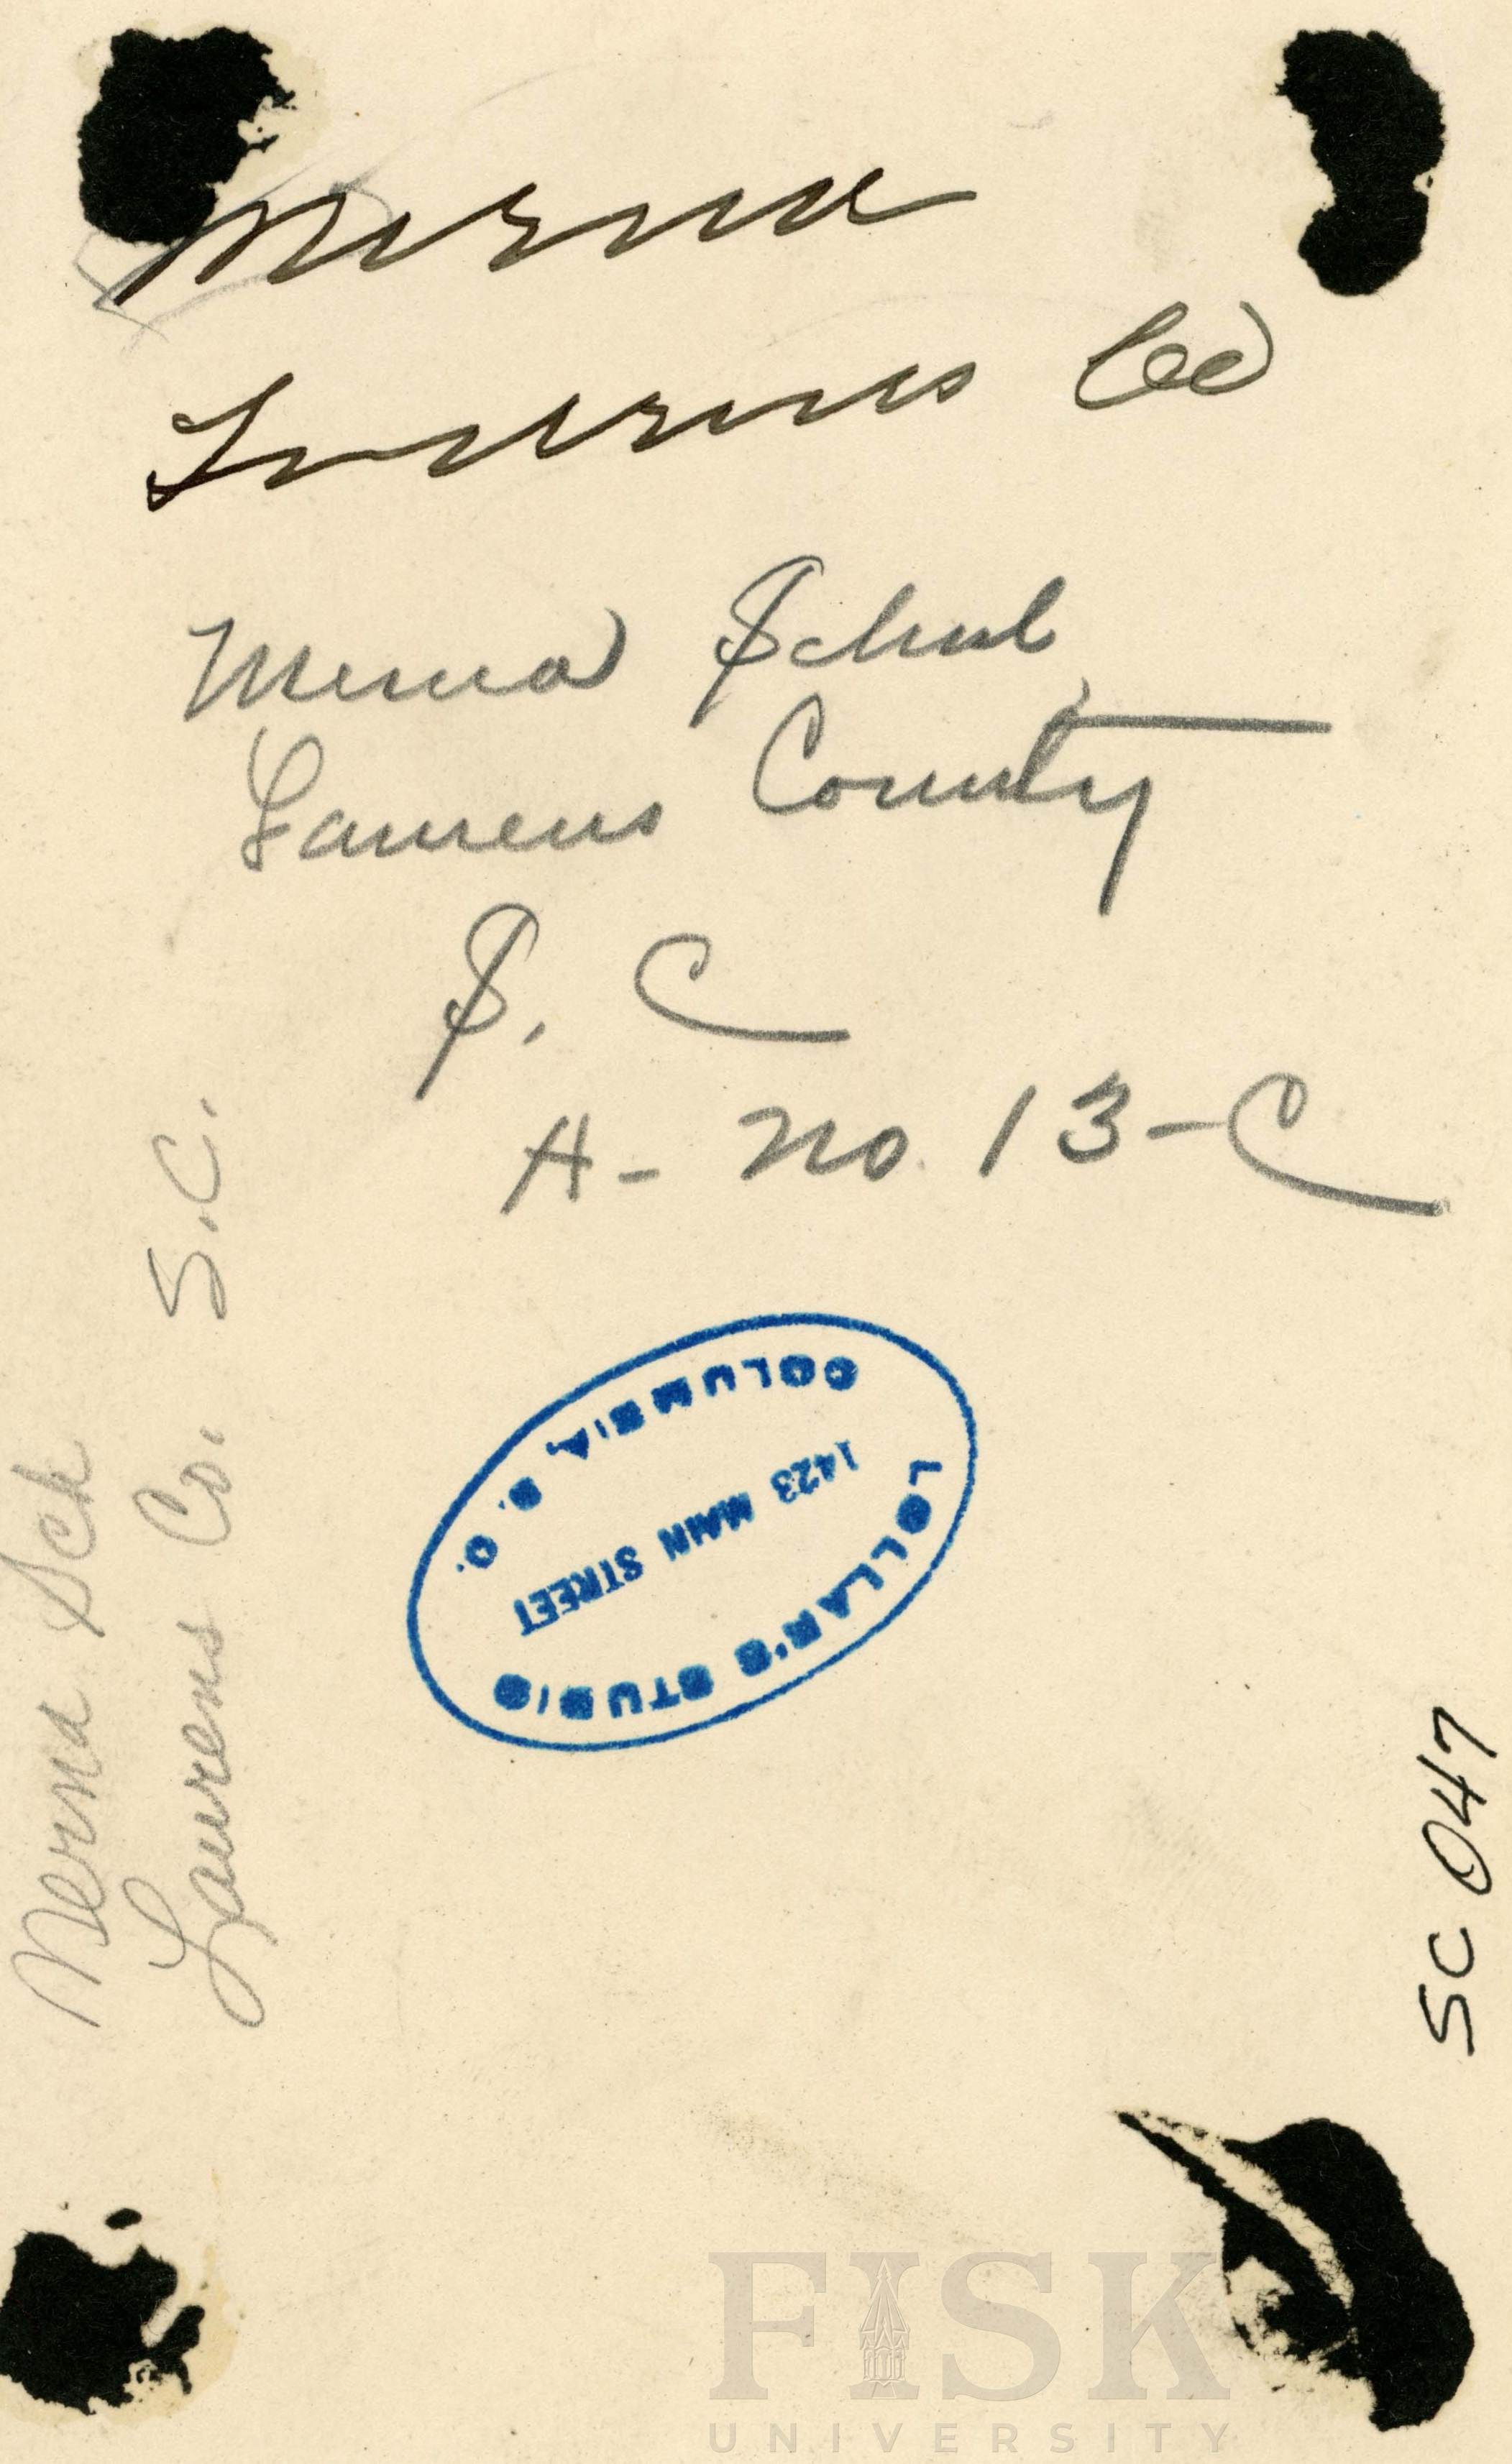 Merna
Laurens Co
Merna School
Laurens County
S. C
A- No. 13-C
Merna Sch
Laurens Co. S.C.
COLUMBIA, S. C.
1423 MAIN STREET
LOLLAR'S STUDIO
SC 047
FISK
UNIVERSITY